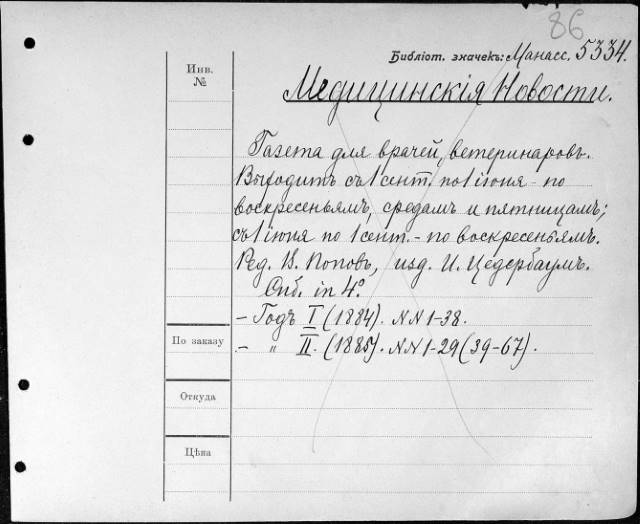 86
Библіот. значекъ: Манасс. 5334.
Инв.
№
Медицинскія Новости.
Газета для врачей, ветеринаровъ.
Выходитъ съ 1 сент. по 1 іюня - по
воскресеньямъ, средамъ и пятницамъ;
съ 1 іюня по 1 сент. - по воскресеньямъ.
Ред. В. Поповъ, изд. И. Цедербаумъ.
Спб. in 4º.
- Годъ I (1884). NN 1-38.
По заказу
- " II. (1885). NN 1-29 (39-67).
Откуда
Цѣна